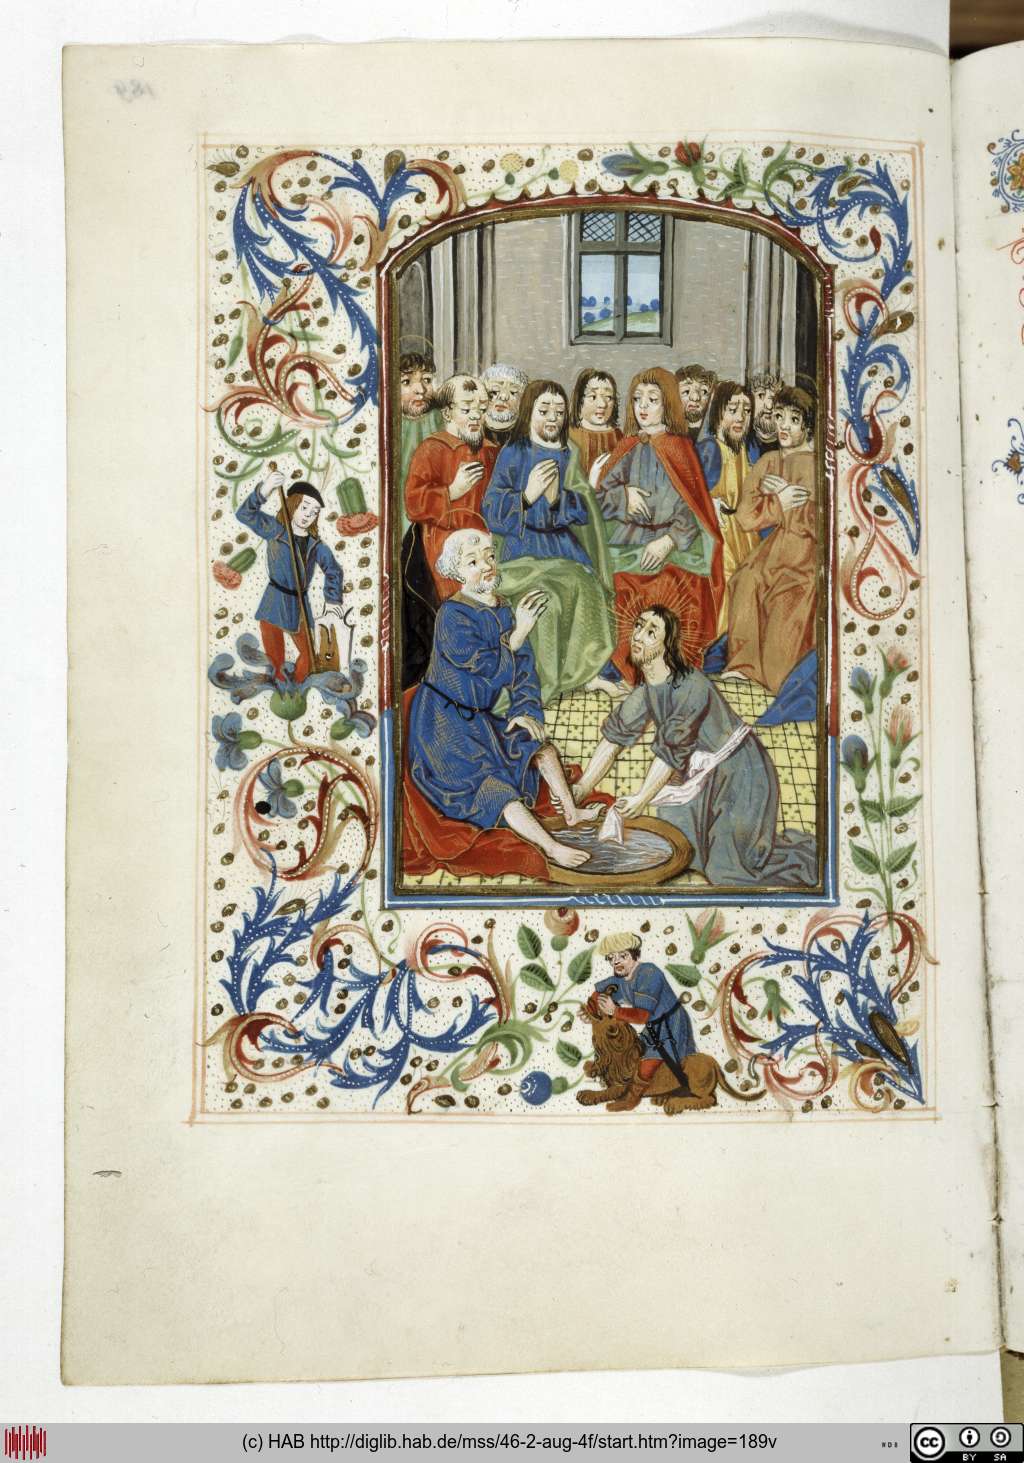 189
(c) HAB http://diglib.hab.de/mss/46-2-aug-4f/start.htm?image=189v
cc
BY SA